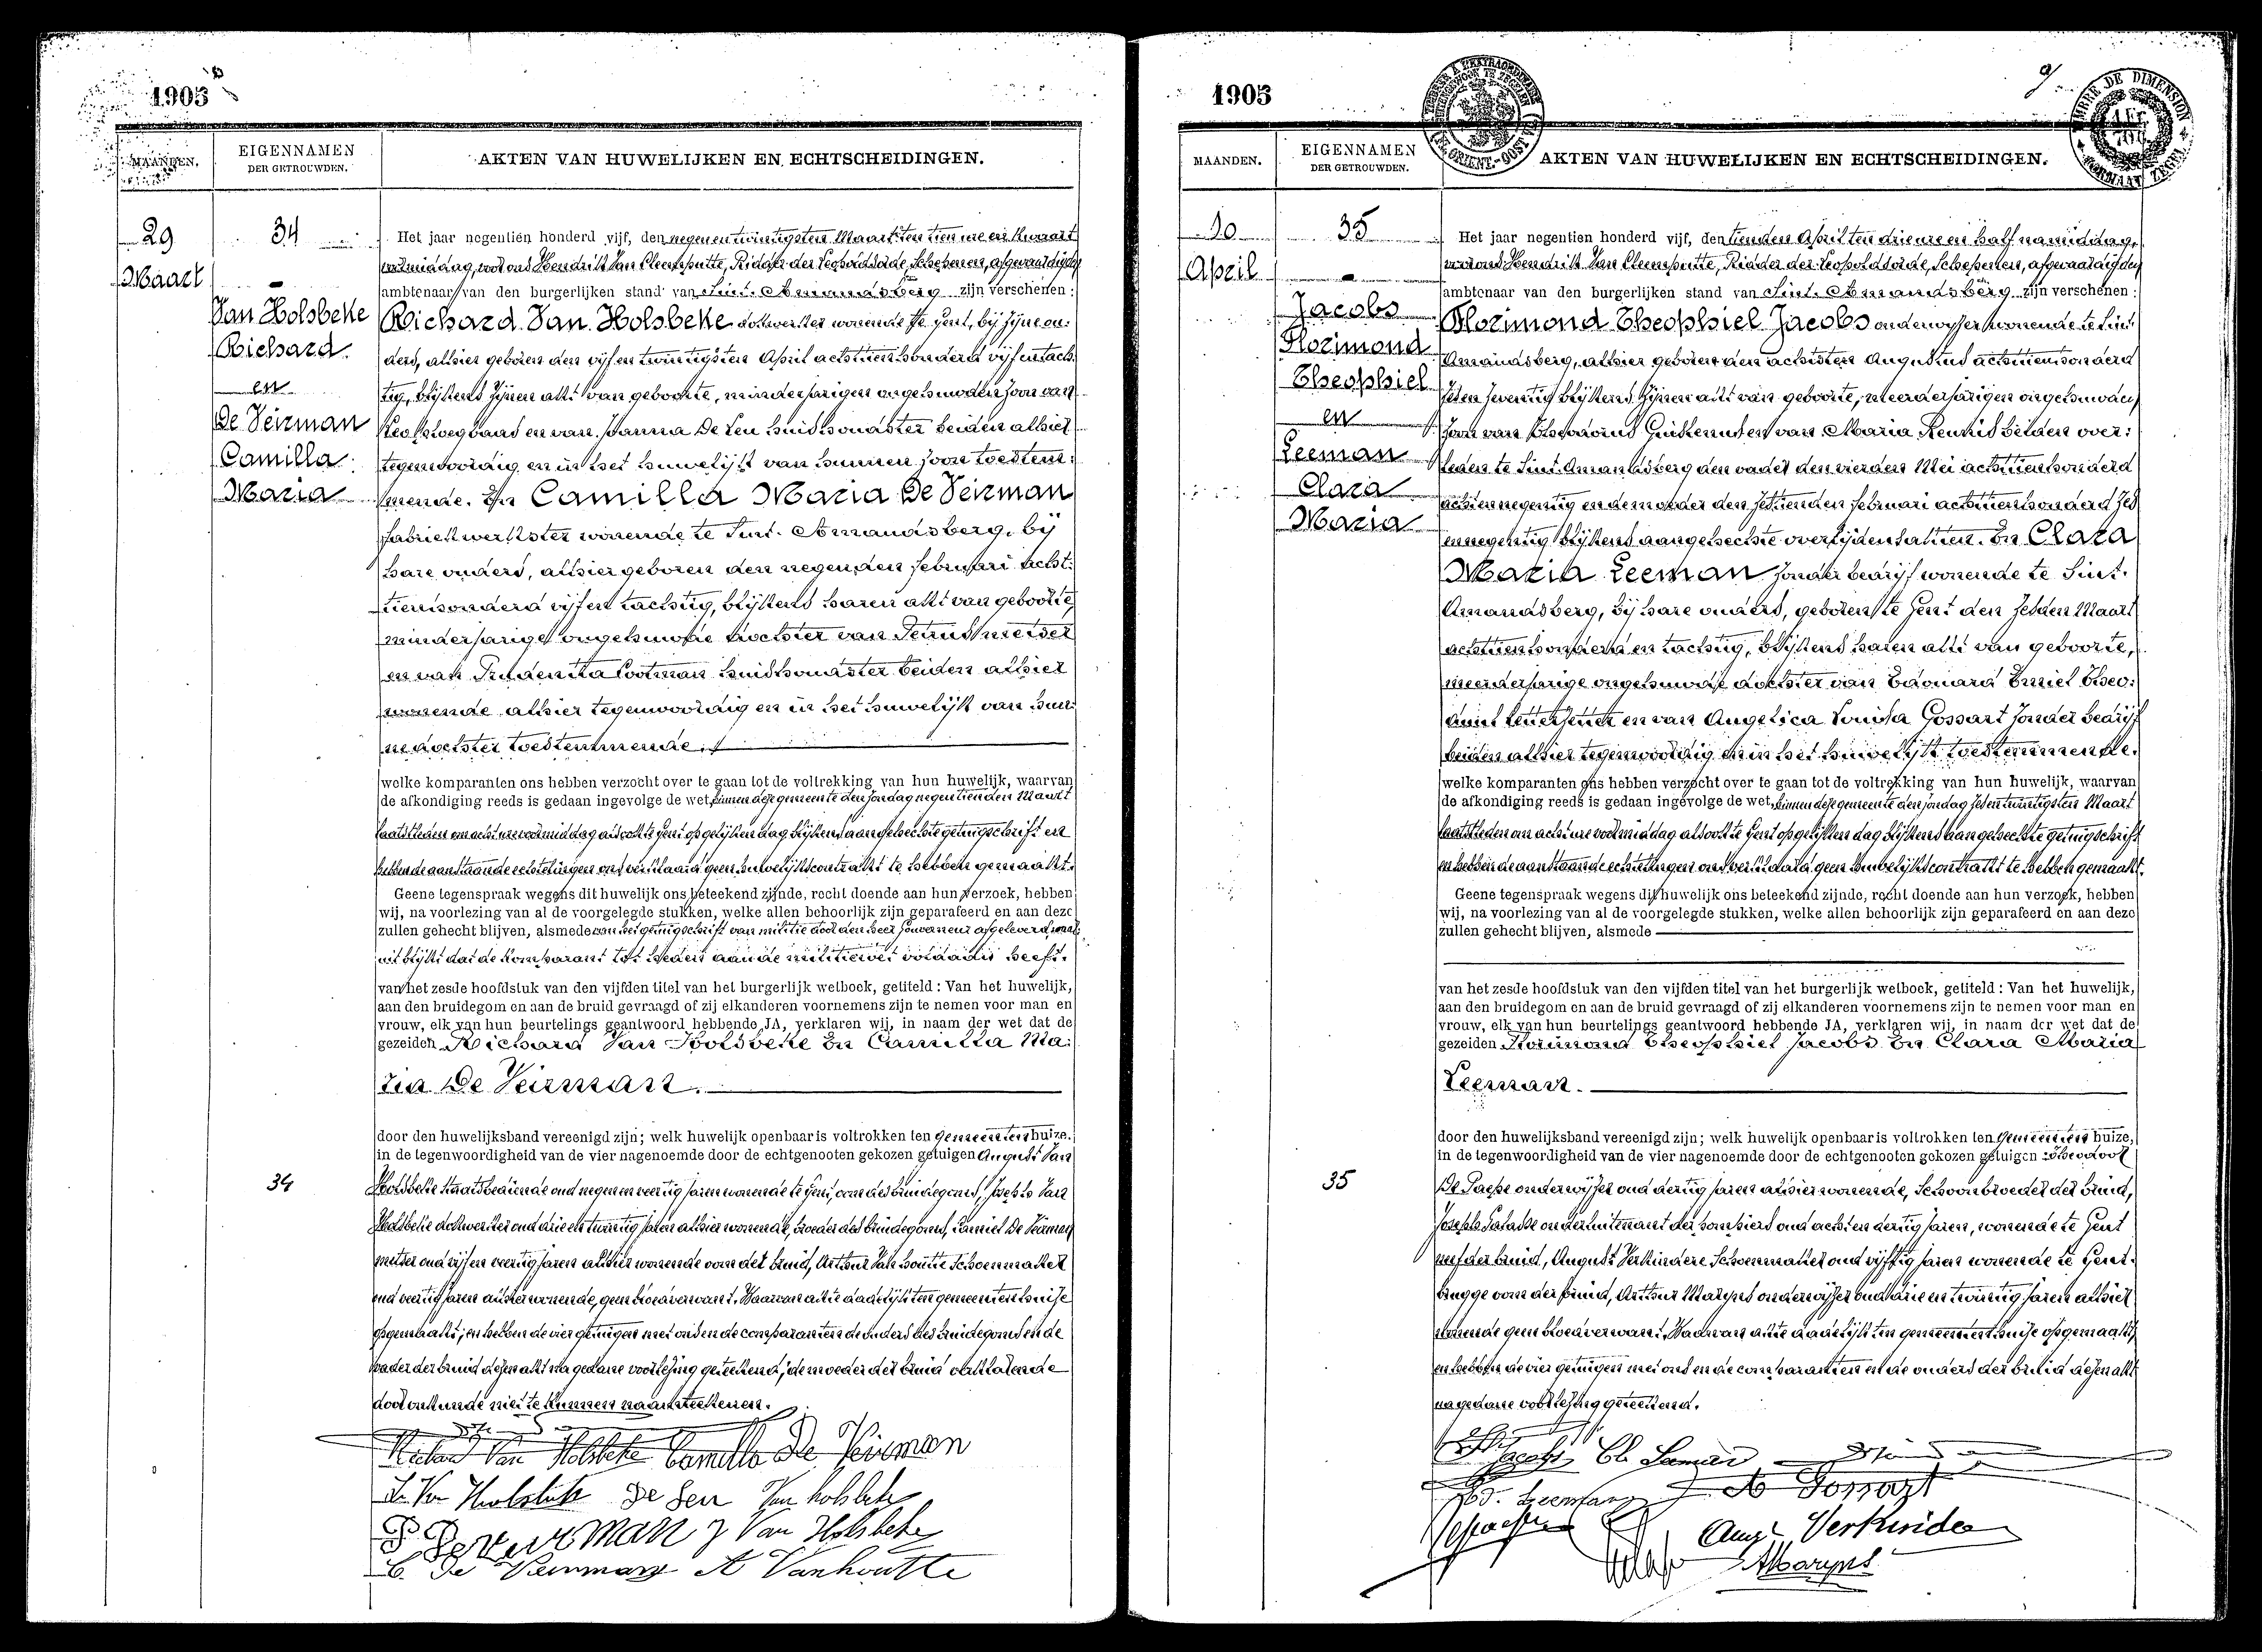 1905
MAANDEN.
EIGENNAMEN
DER GETROUWDEN.
AKTEN VAN HUWELIJKEN EN ECHTSCHEIDINGEN.
29
Maart
34
Van Holsbeke
Richard
en
De Veirman
Camilla
Maria
Het jaar negentien honderd vijf, den negenentwintigsten Maart ten tien ure en kwaart
voormiddag, voor ons Hendrik Van Cleemputte, Ridder der Leopoldsorde, Schepenen, afgevaardigden
ambtenaar van den burgerlijken stand van Sint-Amandsberg zijn verschenen:
Richard Van Holsbeke dokwerker wonende te Gent, bij zijne ou:
ders, alhier geboren den vijfentwintigsten April achttienhonderd vijfentach:
tig, blijkens zijnen akt van geboorte, minderjarigen ongehuwden zoon van
en van Joanna De Leu huishoudster beiden alhier
tegenwoordig en in het huwelijk van hunnen zoon toestem:
mende. En Camilla Maria De Veirman
fabriekwerkster wonende te Sint-Amandsberg, bij
hare ouders, alhier geboren den negenden februari acht:
tienhonderd vijfentachtig, blijkens haren akt van geboorte,
minderjarige ongehuwde dochter van Petrus metser
en van Prudentia Cootman huishoudster beiden alhier
wonende alhier tegenwoordig en in het huwelijk van hun:
ne dochter toestemmende.
welke komparanten ons hebben verzocht over te gaan tot de voltrekking van hun huwelijk, waarvan
de afkondiging reeds is gedaan ingevolge de wet, binnen deze gemeente den zondag negentienden Maart
laatstleden om acht ure voormiddag alsook te Gent op gelijken dag blijkens aangehechte getuigschrift en
hebben de aanstaande echtelingen ons verklaard geen huwelijkscontrakt te hebben gemaakt.
Geene tegenspraak wegens dit huwelijk ons beteekend zijnde, recht doende aan hun verzoek, hebben
wij, na voorlezing van al de voorgelegde stukken, welke allen behoorlijk zijn geparafeerd en aan deze
zullen gehecht blijven, alsmede van het getuigschrift van militie door den heer Gouverneur afgeleverd waar:
uit blijkt dat de komparant tot heden aan de militiewet voldaan heeft.
van het zesde hoofdstuk van den vijfden titel van het burgerlijk wetboek, getiteld : Van het huwelijk,
aan den bruidegom en aan de bruid gevraagd of zij elkanderen voornemens zijn te nemen voor man en
vrouw, elk van hun beurtelings geantwoord hebbende JA, verklaren wij, in naam der wet dat de
gezeiden Richard Van Holsbeke En Camilla Ma:
ria De Veirman.
door den huwelijksband vereenigd zijn; welk huwelijk openbaar is voltrokken ten Gemeentenhuize,
in de tegenwoordigheid van de vier nagenoemde door de echtgenooten gekozen getuigen August Van
34
Holsbeke Staatsbediende oud negenenveertig jaren wonende te Gent, oom des bruidegoms, Joseph Van
Holsbeke dokwerker oud drieentwintig jaren alhier wonende, broeder des bruidegoms, Camiel De Veirman
metser oud vijfenveertig jaren alhier wonende oom der bruid, Arthur Van houtte Schoenmaker
oud veertig jaren alhier wonende, geen bloedverwant. Waarvan akte dadelijk ten gemeentenhuize
opgemaakt; en hebben de vier getuigen met ons en de comparanten de ouders des bruidegoms en de
vader der bruid dezen akt na gedane voorlezing geteekend, de moeder der bruid verklarende
door onkunde niet te kunnen naamteekenen.
Richard Van Holsbeke Camilla De Veirman
Van Holsbeke De Leu Van holsbeke
De Veirman J Van Holsbeke
C. De Veirman A Vanhoutte
1905
9
TIMBRE DE DIMENSION
MAANDEN.
EIGENNAMEN
DER GETROUWDEN.
AKTEN VAN HUWELIJKEN EN ECHTSCHEIDINGEN.
10
April
35
Jacobs
Florimond
Theophiel
en
Leeman
Clara
Maria
Het jaar negentien honderd vijf, den tienden April ten drie ure en half namiddag,
voor ons Hendrik Van Cleemputte, Ridder der Leopoldsorde, Schepenen, afgevaardigden
ambtenaar van den burgerlijken stand van Sint-Amandsberg zijn verschenen :
Florimond Theophiel Jacobs onderwijzer wonende te Sint
Amandsberg, alhier geboren den achtsten Augustus achttienhonderd
zeven zeventig blijkens zijnen akt van geboorte, meerderjarigen ongehuwden
zoon van en van Maria beiden over:
leden te Sint-Amandsberg den vader den vierden Mei achttienhonderd
achtennegentig en de moeder den zestienden februari achttienhonderd zes
ennegentig blijkens aangehechte overlijdensakten. En Clara
Maria Leeman zonder bedrijf wonende te Sint-
Amandsberg, bij hare ouders, geboren te Gent den zesden Maart
achttienhonderd en tachtig, blijkens haren akt van geboorte,
meerderjarige ongehuwde dochter van Edouard Emiel Theo:
letterzetter en van Angelica Louisa Gossart zonder bedrijf
beiden alhier tegenwoordig en in het huwelijk toestemmende.
welke komparanten ons hebben verzocht over te gaan tot de voltrekking van hun huwelijk, waarvan
de afkondiging reeds is gedaan ingevolge de wet, binnen deze gemeente den zondag zesentwintigsten Maart
laatstleden om acht ure voormiddag alsook te Gent op gelijken dag blijkens aangehechte getuigschrift
en hebben de aanstaande echtelingen ons verklaard geen huwelijkscontrakt te hebben gemaakt.
Geene tegenspraak wegens dit huwelijk ons beteekend zijnde, recht doende aan hun verzoek, hebben
wij, na voorlezing van al de voorgelegde stukken, welke allen behoorlijk zijn geparafeerd en aan deze
zullen gehecht blijven, alsmede
van het zesde hoofdstuk van den vijfden titel van het burgerlijk wetboek, getiteld : Van het huwelijk,
aan den bruidegom en aan de bruid gevraagd of zij elkanderen voornemens zijn te nemen voor man en
vrouw, elk van hun beurtelings geantwoord hebbende JA, verklaren wij, in naam der wet dat de
gezeiden Florimond Theophiel Jacobs En Clara Maria
Leeman.
door den huwelijksband vereenigd zijn; welk huwelijk openbaar is voltrokken ten Gemeentens huize,
in de tegenwoordigheid van de vier nagenoemde door de echtgenooten gekozen getuigen Theodoor
35
De Paepe onderwijzer oud dertig jaren alhier wonende, Schoonbroeder der bruid,
Joseph onderluitenant der pompiers oud achtendertig jaren, wonende te Gent
neef der bruid, August Verkindere Schoenmaker oud vijftig jaren wonende te Gent-
brugge oom der bruid, Arthur Maryns onderwijzer oud drieentwintig jaren alhier
wonende geen bloedverwant. Waarvan akte dadelijk ten gemeentenhuize opgemaakt,
en hebben de vier getuigen met ons en de comparanten en de ouders der bruid dezen akt
na gedane voorlezing geteekend.
Jacobs Cl. Leeman
Ed. Leeman A Gossart
Aug. Verkindere
A Maryns